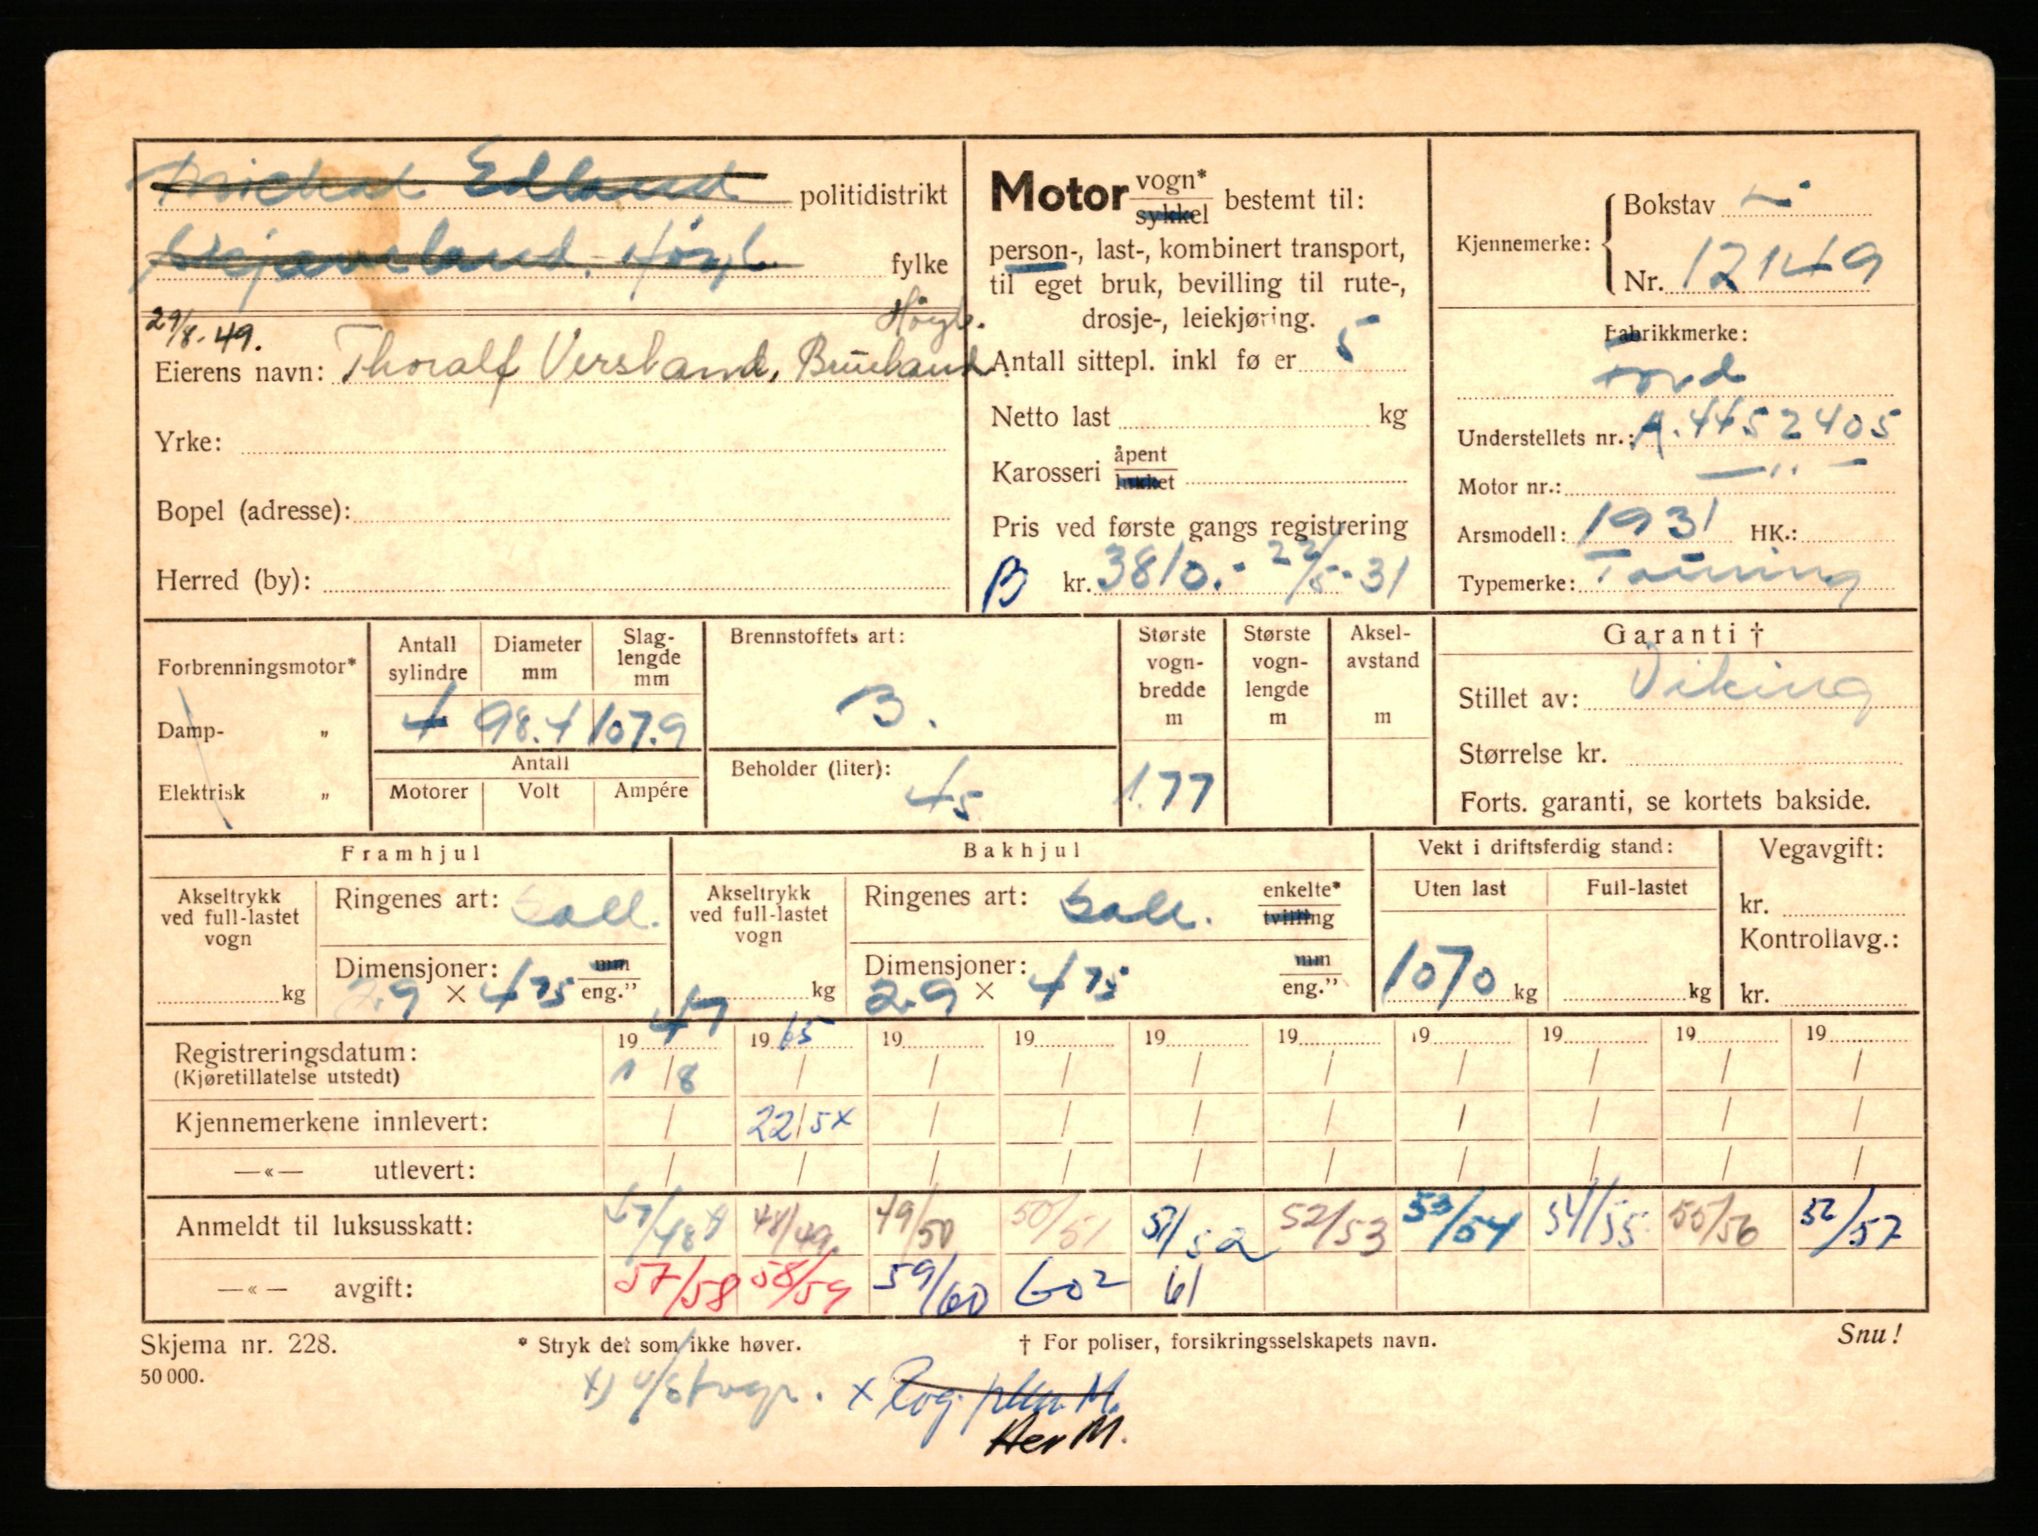 Michal Edland politidistrikt
Skjæveland. Høyl. fylke
29/8.49. Høyl.
Eierens navn: Thoralf Versland, Brueland.
Yrke:
Bopel (adresse):
Herred (by):
Motor vogn* sykkel bestemt til:
person-, last-, kombinert transport,
til eget bruk, bevilling til rute-,
drosje-, leiekjøring.
Antall sittepl. inkl fø er 5
Netto last kg
Karosseri åpent lukket
Pris ved første gangs registrering
B kr. 3810.- 22/5-31
Kjennemerke: Bokstav
Nr. 12149
Fabrikkmerke:
Ford
Understellets nr.: A.4452405
Motor nr.: —"—
Arsmodell: 1931 HK.:
Typemerke: Touring
Forbrenningsmotor*
Damp- "
Elektrisk "
Antall sylindre 4
Diameter mm 98.4
Slag-lengde mm 107.9
Antall
Motorer Volt Ampére
Brennstoffets art:
B.
Beholder (liter):
45
Største vogn-bredde m
1.77
Største vogn-lengde m
Aksel-avstand m
Garanti †
Stillet av: Viking
Størrelse kr.
Forts. garanti, se kortets bakside.
Framhjul
Akseltrykk ved full-lastet vogn kg
Ringenes art: ball.
Dimensjoner: mm
29 × 475 eng."
Bakhjul
Akseltrykk ved full-lastet vogn kg
Ringenes art: ball. enkelte* tvilling
Dimensjoner: mm
29 × 475 eng."
Vekt i driftsferdig stand:
Uten last Full-lastet
1070 kg kg
Vegavgift:
kr.
Kontrollavg.:
kr.
19 47 19 65 19 19 19 19 19 19 19 19
Registreringsdatum: 1/8 / / / / / / / / /
(Kjøretillatelse utstedt)
Kjennemerkene innlevert: / 22/5x / / / / / / / /
—«— utlevert: / / / / / / / / / /
Anmeldt til luksusskatt: 47/48 48/49. 49/50 50/51 51/52 52/53 53/54 54/55 55/56 56/57
—«— avgift: 57/58 58/59 59/60 60² 61
Skjema nr. 228. * Stryk det som ikke høver. † For poliser, forsikringsselskapets navn. Snu!
50 000.
Her M.